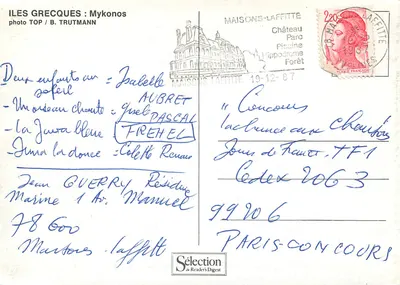 ILES GRECQUES : Mykonos
photo TOP / B. TRUTMANN
MAISONS-LAFFITTE
Château
Parc
Piscine
Hippodrome
Forêt
19-12-87
2,20
Deux enfants au soleil - Isabelle AUBRET
- Un oiseau chante = PASCAL
- La Java bleue = FREHEL
- la douce = Colette Renard
Jean GUERRY Résidence
Marine 1 Av.
78600
Maisons-Laffitte
"Concours
la chance aux Chansons
Jours de France. TF1
Cedex 2063
99206
PARIS-CONCOURS
Sélection
du Reader's Digest